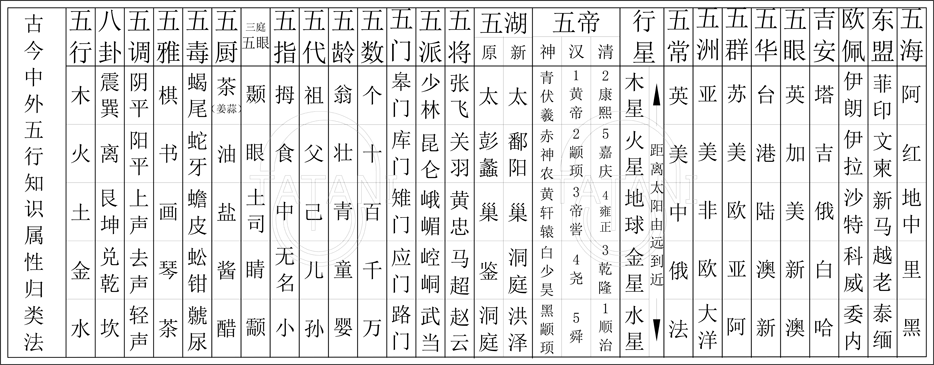 古今中外五行知识属性归类法
五行 木 火 土 金 水
八卦 震巽 离 艮坤 兑乾 坎
五调 阴平 阳平 上声 去声 轻声
五雅 棋 书 画 琴 茶
五毒 蝎尾 蛇牙 蟾皮 蚣钳 尿
五厨 茶(姜蒜) 油 盐 酱 醋
三庭五眼 眼 土司 睛
五指 拇 食 中 无名 小
五代 祖 父 己 儿 孙
五龄 翁 壮 青 童 婴
五数 个 十 百 千 万
五门 皋门 库门 雉门 应门 路门
五派 少林 昆仑 峨嵋 崆峒 武当
五将 张飞 关羽 黄忠 马超 赵云
五湖
原 太 彭蠡 巢 鉴 洞庭
新 太 鄱阳 巢 洞庭 洪泽
五帝
神 青伏羲 赤神农 黄轩辕 白少昊 黑颛顼
汉 1黄帝 2颛顼 3帝喾 4尧 5舜
清 2康熙 5嘉庆 4雍正 3乾隆 1顺治
行星 木星 火星 地球 金星 水星
距离太阳由远到近
五常 英 美 中 俄 法
五洲 亚 美 非 欧 大洋
五群 苏 美 欧 亚 阿
五华 台 港 陆 澳 新
五眼 英 加 美 新 澳
吉安 塔 吉 俄 白 哈
欧佩 伊朗 伊拉 沙特 科威 委内
东盟 菲印 文柬 新马 越老 泰缅
五海 阿 红 地中 里 黑